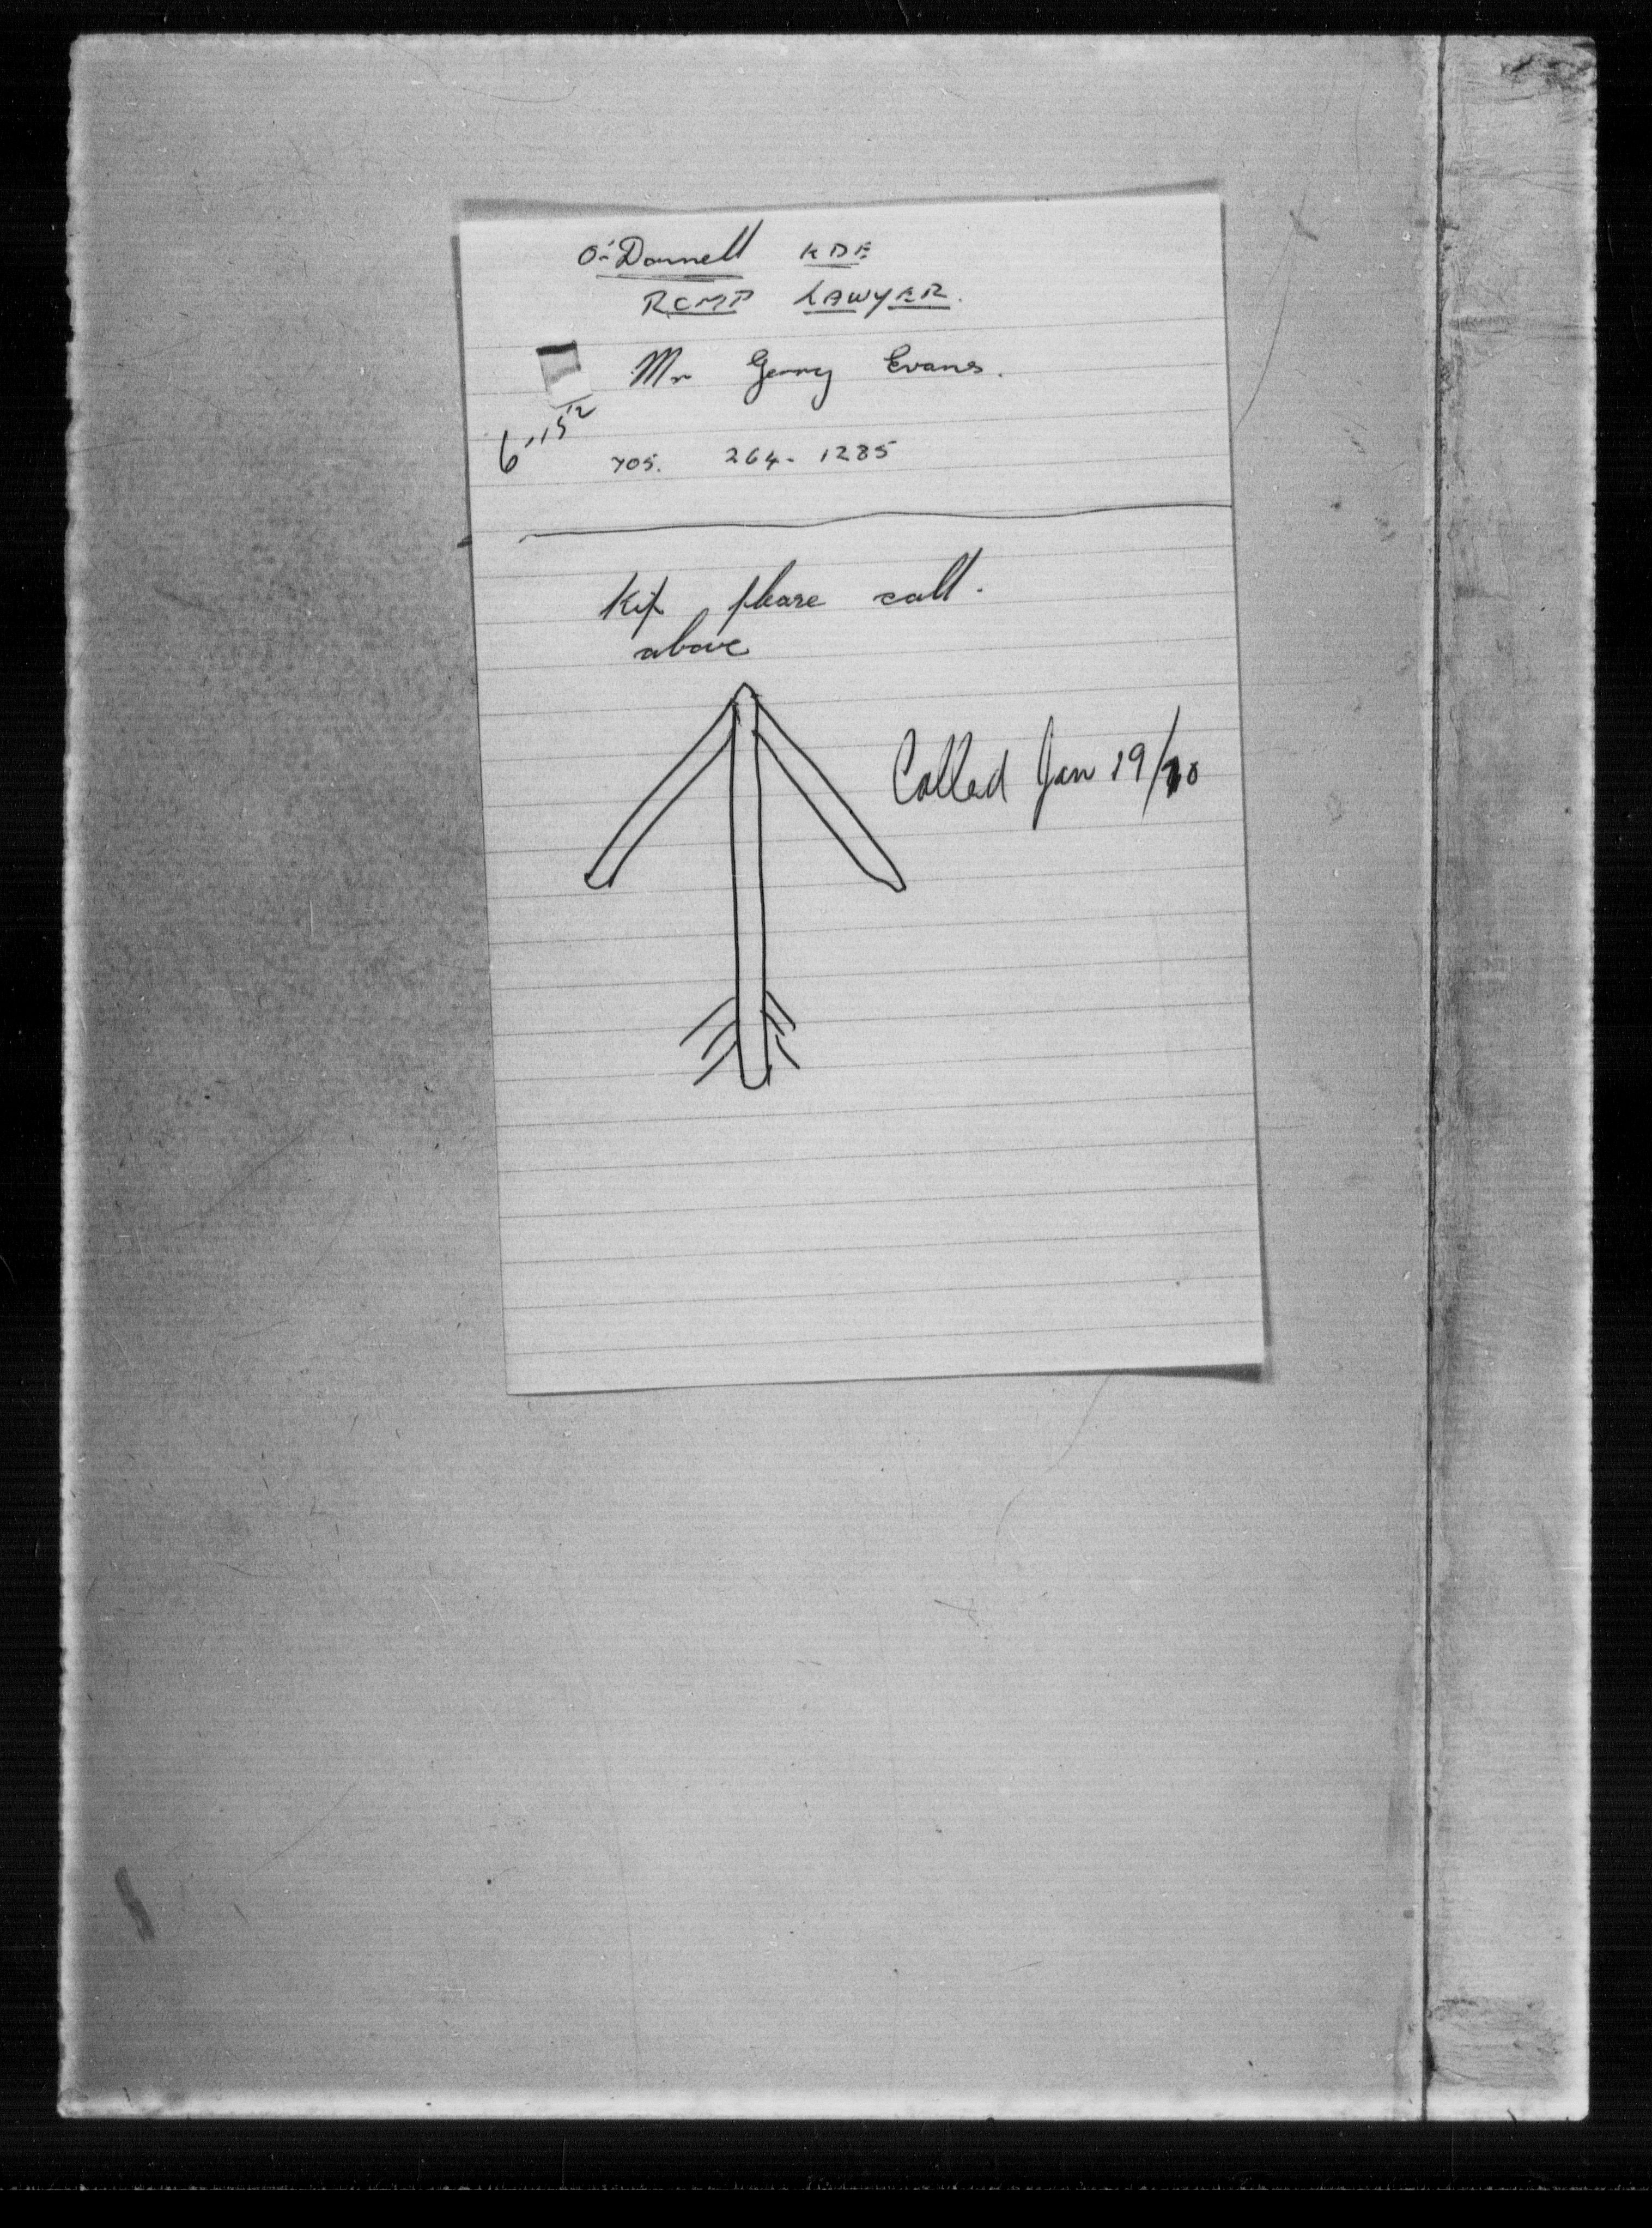 O'Donnell KDE
RCMP LAWYER.
Mr Gerry Evans.
705. 264-1285
Kip please call.
above
Called Jan 19/